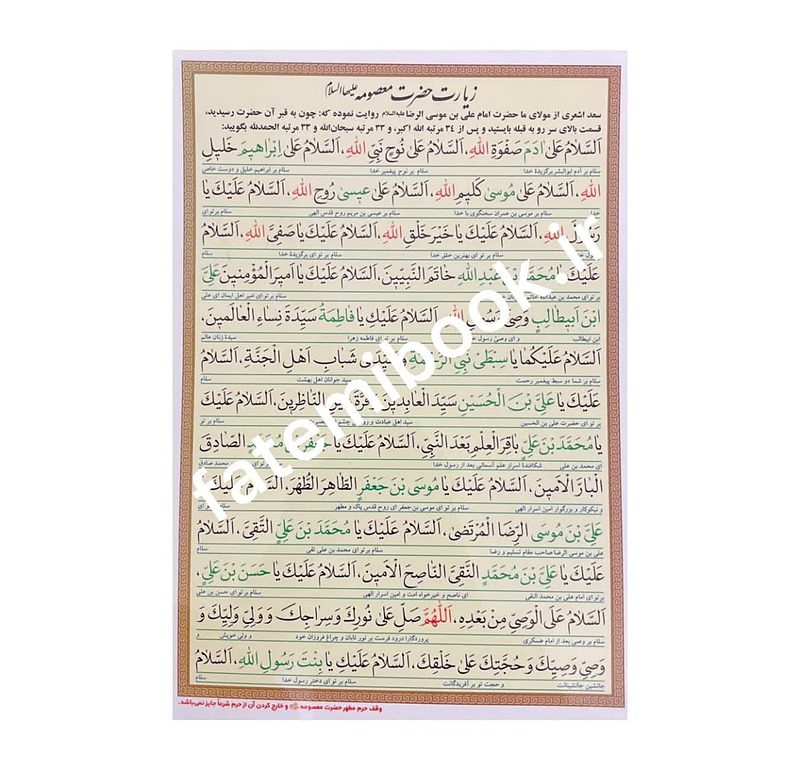 زیارت حضرت معصومه علیهاالسلام
سعد اشعری از مولای ما حضرت امام علی بن موسی الرضا علیه‌السلام روایت نموده که: چون به قبر آن حضرت رسیدید،
قسمت بالای سر رو به قبله بایستید و پس از ۳۴ مرتبه الله اکبر، و ۳۳ مرتبه سبحان‌الله و ۳۳ مرتبه الحمدلله بگویید:
اَلسَّلامُ عَلیٰ ادَمَ صَفْوَةِ اللهِ، اَلسَّلامُ عَلیٰ نُوحٍ نَبِیِّ اللهِ، اَلسَّلامُ عَلیٰ اِبْراهیمَ خَلیلِ
سلام بر آدم ابوالبشر برگزیدهٔ خدا سلام بر نوح پیغمبر خدا سلام بر ابراهیم خلیل و دوست خاص
اللهِ، اَلسَّلامُ عَلیٰ مُوسیٰ کَلیمِ اللهِ، اَلسَّلامُ عَلیٰ عیسیٰ رُوحِ اللهِ، اَلسَّلامُ عَلَیْكَ یا
خدا سلام بر موسی بن عمران سخنگوی با خدا سلام بر عیسی بن مریم روح قدس الهی سلام بر تو ای
رَسُولَ اللهِ، اَلسَّلامُ عَلَیْكَ یا خَیْرَ خَلْقِ اللهِ، اَلسَّلامُ عَلَیْكَ یا صَفِیَّ اللهِ، اَلسَّلامُ
سلام بر تو ای بهترین خلق خدا سلام بر تو ای برگزیدهٔ خدا سلام
عَلَیْكَ یا مُحَمَّدَ بْنَ عَبْدِ اللهِ خاتَمَ النَّبِیّینَ، اَلسَّلامُ عَلَیْكَ یا اَمیرَ الْمُؤْمِنینَ عَلِیَّ
بر تو ای محمد بن عبدالله خاتم سلام بر تو ای امیر اهل ایمان ای علی
ابْنَ اَبیطالِبٍ وَصِیَّ رَسُولِ اللهِ، اَلسَّلامُ عَلَیْكَ یا فاطِمَةُ سَیِّدَةَ نِساءِ الْعالَمینَ،
ابن ابیطالب و ای وصی رسول سلام بر تو ای فاطمه زهرا سیدهٔ زنان عالم
اَلسَّلامُ عَلَیْکُما یا سِبْطَیْ نَبِیِّ الرَّحْمَةِ وَ سَیِّدَیْ شَبابِ اَهْلِ الْجَنَّةِ، اَلسَّلامُ
سلام بر شما دو سبط پیغمبر رحمت سید جوانان اهل بهشت سلام
عَلَیْكَ یا عَلِیَّ بْنَ الْحُسَیْنِ سَیِّدَ الْعابِدینَ وَ قُرَّةَ عَیْنِ النّاظِرینَ، اَلسَّلامُ عَلَیْكَ
بر تو ای حضرت علی بن الحسین سید اهل عبادت و روشنی چشم سلام بر تو
یا مُحَمَّدَ بْنَ عَلِیٍّ باقِرَ الْعِلْمِ بَعْدَ النَّبِیِّ، اَلسَّلامُ عَلَیْكَ یا جَعْفَرَ بْنَ مُحَمَّدٍ الصّادِقَ
ای محمد بن علی شکافندهٔ اسرار علم آسمانی بعد از رسول خدا سلام بر تو ای محمد صادق
الْبارَّ الْاَمینَ، اَلسَّلامُ عَلَیْكَ یا مُوسَی بْنَ جَعْفَرٍ الطّاهِرَ الطُّهْرَ، اَلسَّلامُ عَلَیْكَ یا
و نیکوکار و بزرگوار امین اسرار الهی سلام بر تو ای موسی بن جعفر ای روح قدس پاک و مطهر
عَلِیَّ بْنَ مُوسَی الرِّضَا الْمُرْتَضیٰ، اَلسَّلامُ عَلَیْكَ یا مُحَمَّدَ بْنَ عَلِیٍّ التَّقِیَّ، اَلسَّلامُ
علی بن موسی الرضا صاحب مقام تسلیم و رضا سلام بر تو ای محمد بن علی تقی سلام
عَلَیْكَ یا عَلِیَّ بْنَ مُحَمَّدٍ النَّقِیَّ النّاصِحَ الْاَمینَ، اَلسَّلامُ عَلَیْكَ یا حَسَنَ بْنَ عَلِیٍّ،
بر تو ای امام علی بن محمد النقی ای ناصح و خیرخواه امت و امین اسرار الهی سلام بر تو ای حسن بن علی
اَلسَّلامُ عَلَی الْوَصِیِّ مِنْ بَعْدِهِ، اَللّهُمَّ صَلِّ عَلیٰ نُورِكَ وَ سِراجِكَ وَ وَلِیِّ وَلِیِّكَ وَ
سلام بر وصی بعد از امام عسکری پروردگارا درود فرست بر نور تابان و چراغ فروزان خود و ولی خویش و
وَصِیِّ وَصِیِّكَ وَ حُجَّتِكَ عَلیٰ خَلْقِكَ، اَلسَّلامُ عَلَیْكِ یا بِنْتَ رَسُولِ اللهِ، اَلسَّلامُ
جانشین جانشینانت و حجت تو بر آفریدگانت سلام بر تو ای دختر رسول خدا سلام
وقف حرم مطهر حضرت معصومه و خارج کردن آن از حرم شرعاً جایز نمی‌باشد.
fatemibook.ir